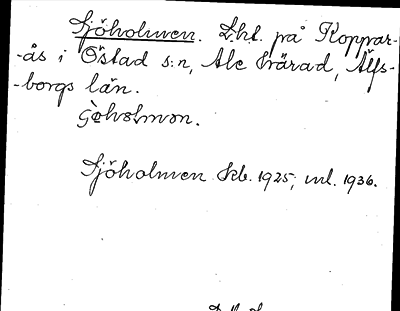 Sjöholmen. Lht. på Koppar-
-ås i Östad s:n, Ale härad, Älfs-
-borgs län.

Sjöholmen Kb. 1925; ml. 1936.